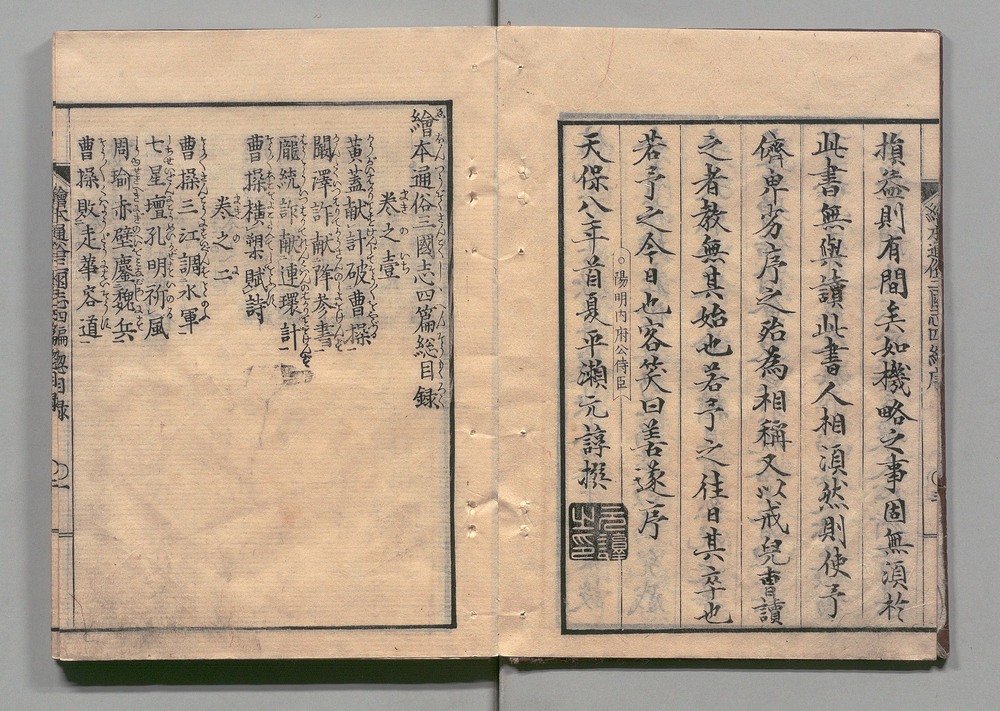 損益則有間矣如機略之事固無須於
此書無與讀此書人相須然則使予
儕卑劣序之殆為相稱又以戒兒曹讀
之者教無其始也若予之往日其卒也
若予之今日也客笑曰善遂序
○陽明内府公侍臣
天保八年首夏平瀬元諄撰
元諄之印
繪本通俗三國志四篇総目録
巻之壹
黄蓋献計破曹操
闞澤詐献降參書
龐統詐献連環計
曹操横槊賦詩
巻之二
曹操三江調水軍
七星壇孔明祈風
周瑜赤壁鏖魏兵
曹操敗走華容道